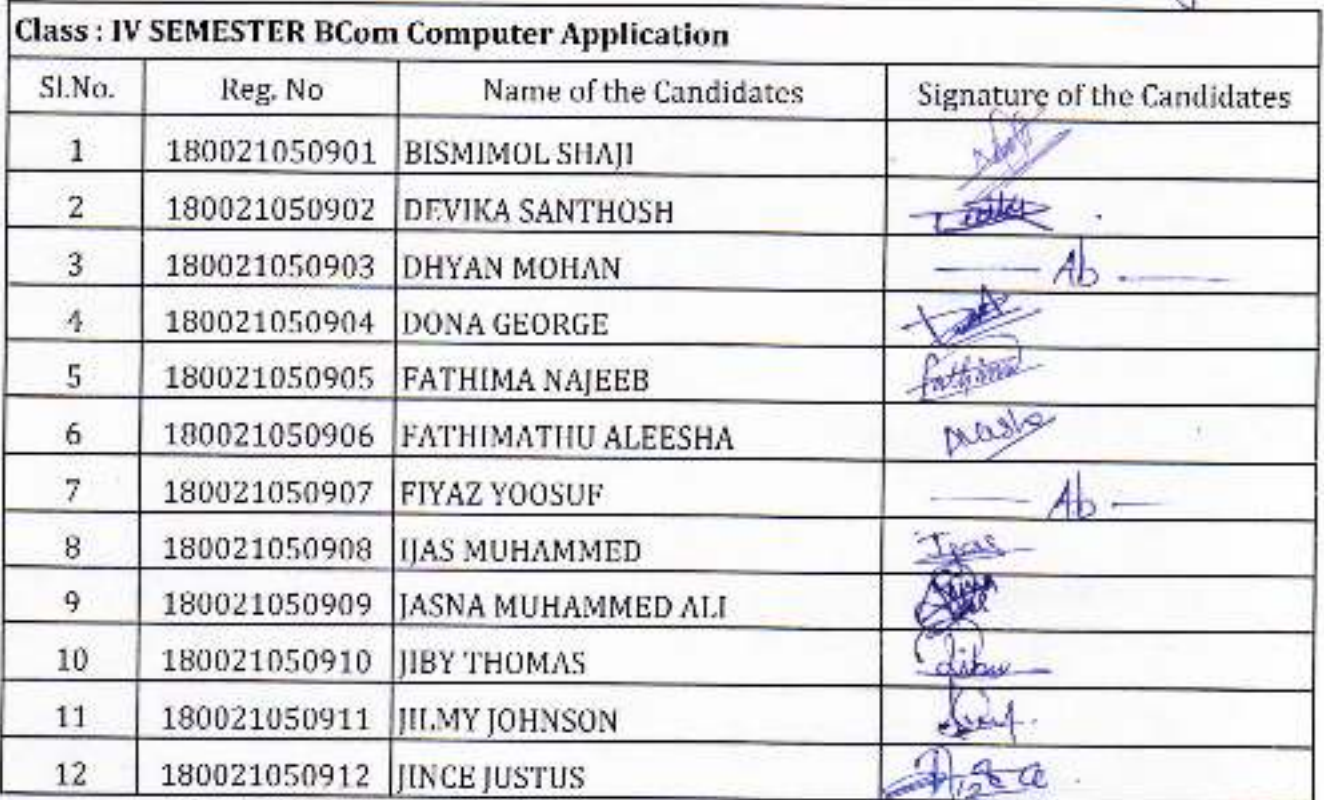 Class : IV SEMESTER BCom Computer Application
Sl.No. Reg. No Name of the Candidates Signature of the Candidates
1 180021050901 BISMIMOL SHAJI
2 180021050902 DEVIKA SANTHOSH
3 180021050903 DHYAN MOHAN Ab
4 180021050904 DONA GEORGE
5 180021050905 FATHIMA NAJEEB Fathima
6 180021050906 FATHIMATHU ALEESHA
7 180021050907 FIYAZ YOOSUF Ab
8 180021050908 IJAS MUHAMMED Ijas
9 180021050909 JASNA MUHAMMED ALI
10 180021050910 JIBY THOMAS
11 180021050911 JILMY JOHNSON
12 180021050912 JINCE JUSTUS